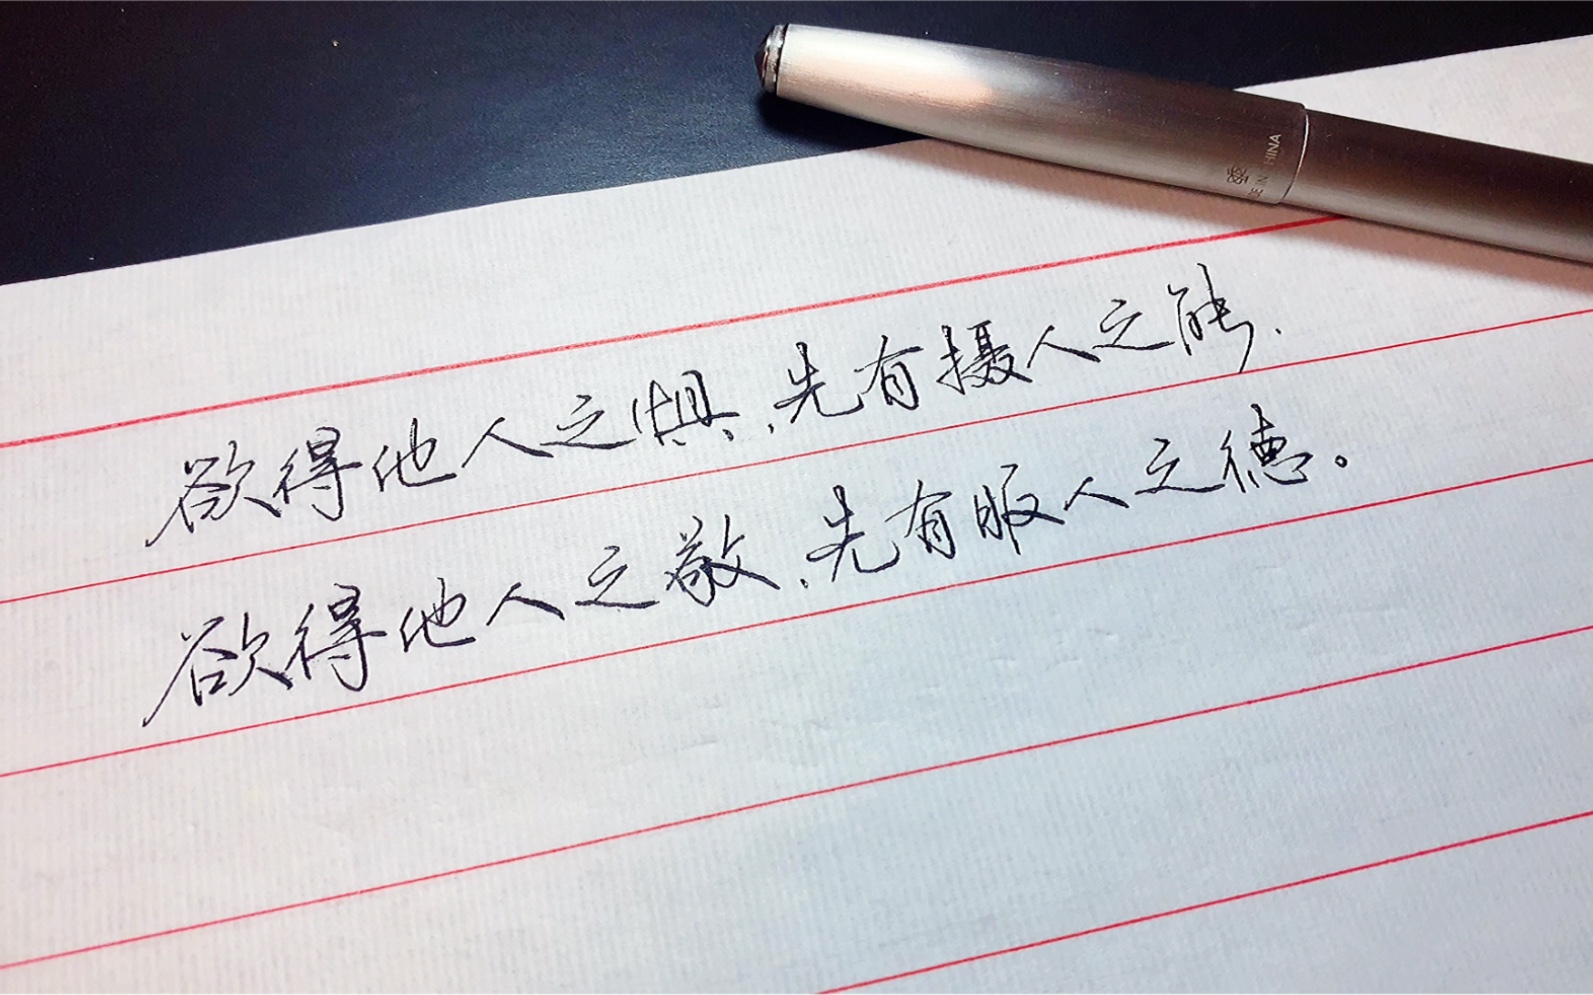 MADE IN CHINA
欲得他人之惧,先有摄人之能.
欲得他人之敬,先有服人之德。